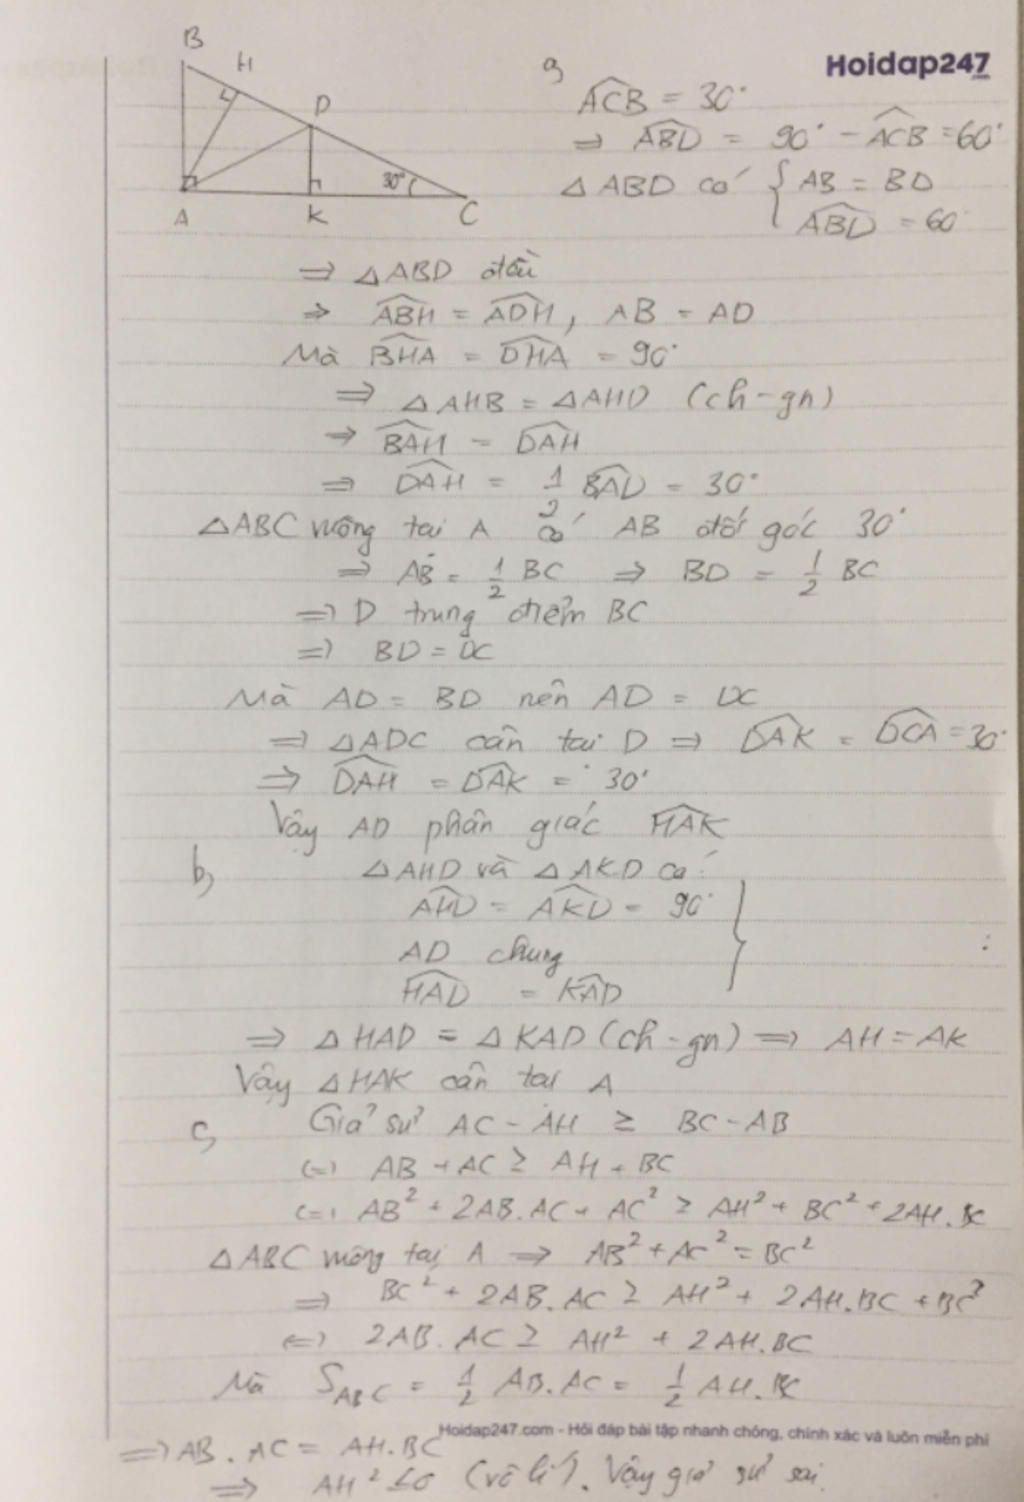 B
H
D
30°
A
K
C
Hoidap247
a,
ACB = 30°
⇒ ABD = 90° - ACB = 60°
△ABD có { AB = BD
ABD = 60°
⇒ △ABD đều
⇒ ABH = ADH, AB = AD
Mà BHA = DHA = 90°
⇒ △AHB = △AHD (ch-gn)
⇒ BAH = DAH
⇒ DAH = 1/2 BAD = 30°
△ABC vuông tại A có AB đối góc 30°
⇒ AB = 1/2 BC ⇒ BD = 1/2 BC
⇒ D trung điểm BC
⇒ BD = DC
Mà AD = BD nên AD = DC
⇒ △ADC cân tại D ⇒ DAK = DCA = 30°
⇒ DAH = DAK = 30°
Vậy AD phân giác HAK
b, △AHD và △AKD có:
AHD = AKD = 90°
AD chung
HAD = KAD
⇒ △HAD = △KAD (ch-gn) ⇒ AH = AK
Vậy △HAK cân tại A
c, Giả sử AC - AH ≥ BC - AB
(=) AB + AC ≥ AH + BC
(=) AB² + 2AB.AC + AC² ≥ AH² + BC² + 2AH.BC
△ABC vuông tại A ⇒ AB² + AC² = BC²
⇒ BC² + 2AB.AC ≥ AH² + 2AH.BC + BC²
(=) 2AB.AC ≥ AH² + 2AH.BC
Mà S_ABC = 1/2 AB.AC = 1/2 AH.BC
Hoidap247.com - Hỏi đáp bài tập nhanh chóng, chính xác và luôn miễn phí
⇒ AB.AC = AH.BC
⇒ AH² ≤ 0 (vô lí). Vậy giả sử sai.